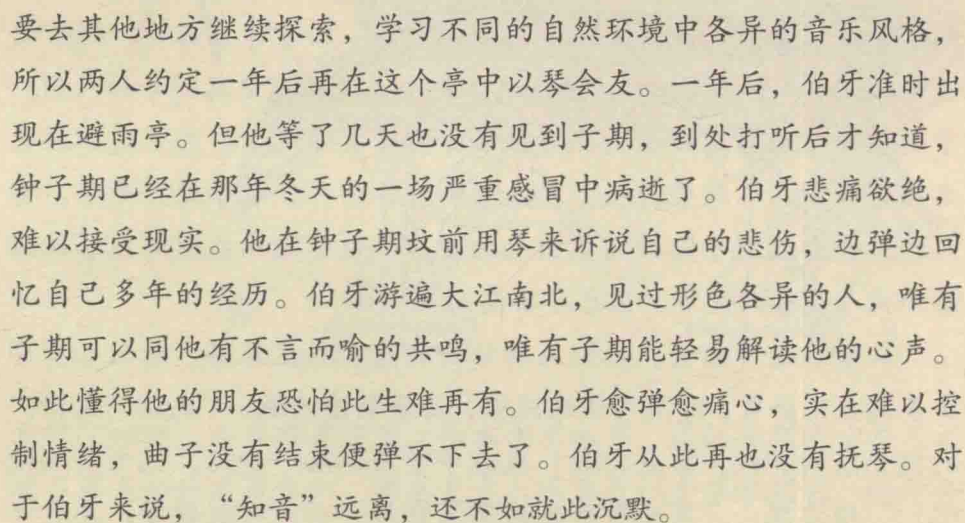 要去其他地方继续探索，学习不同的自然环境中各异的音乐风格，
所以两人约定一年后再在这个亭中以琴会友。一年后，伯牙准时出
现在避雨亭。但他等了几天也没有见到子期，到处打听后才知道，
钟子期已经在那年冬天的一场严重感冒中病逝了。伯牙悲痛欲绝，
难以接受现实。他在钟子期坟前用琴来诉说自己的悲伤，边弹边回
忆自己多年的经历。伯牙游遍大江南北，见过形色各异的人，唯有
子期可以同他有不言而喻的共鸣，唯有子期能轻易解读他的心声。
如此懂得他的朋友恐怕此生难再有。伯牙愈弹愈痛心，实在难以控
制情绪，曲子没有结束便弹不下去了。伯牙从此再也没有抚琴。对
于伯牙来说，“知音”远离，还不如就此沉默。